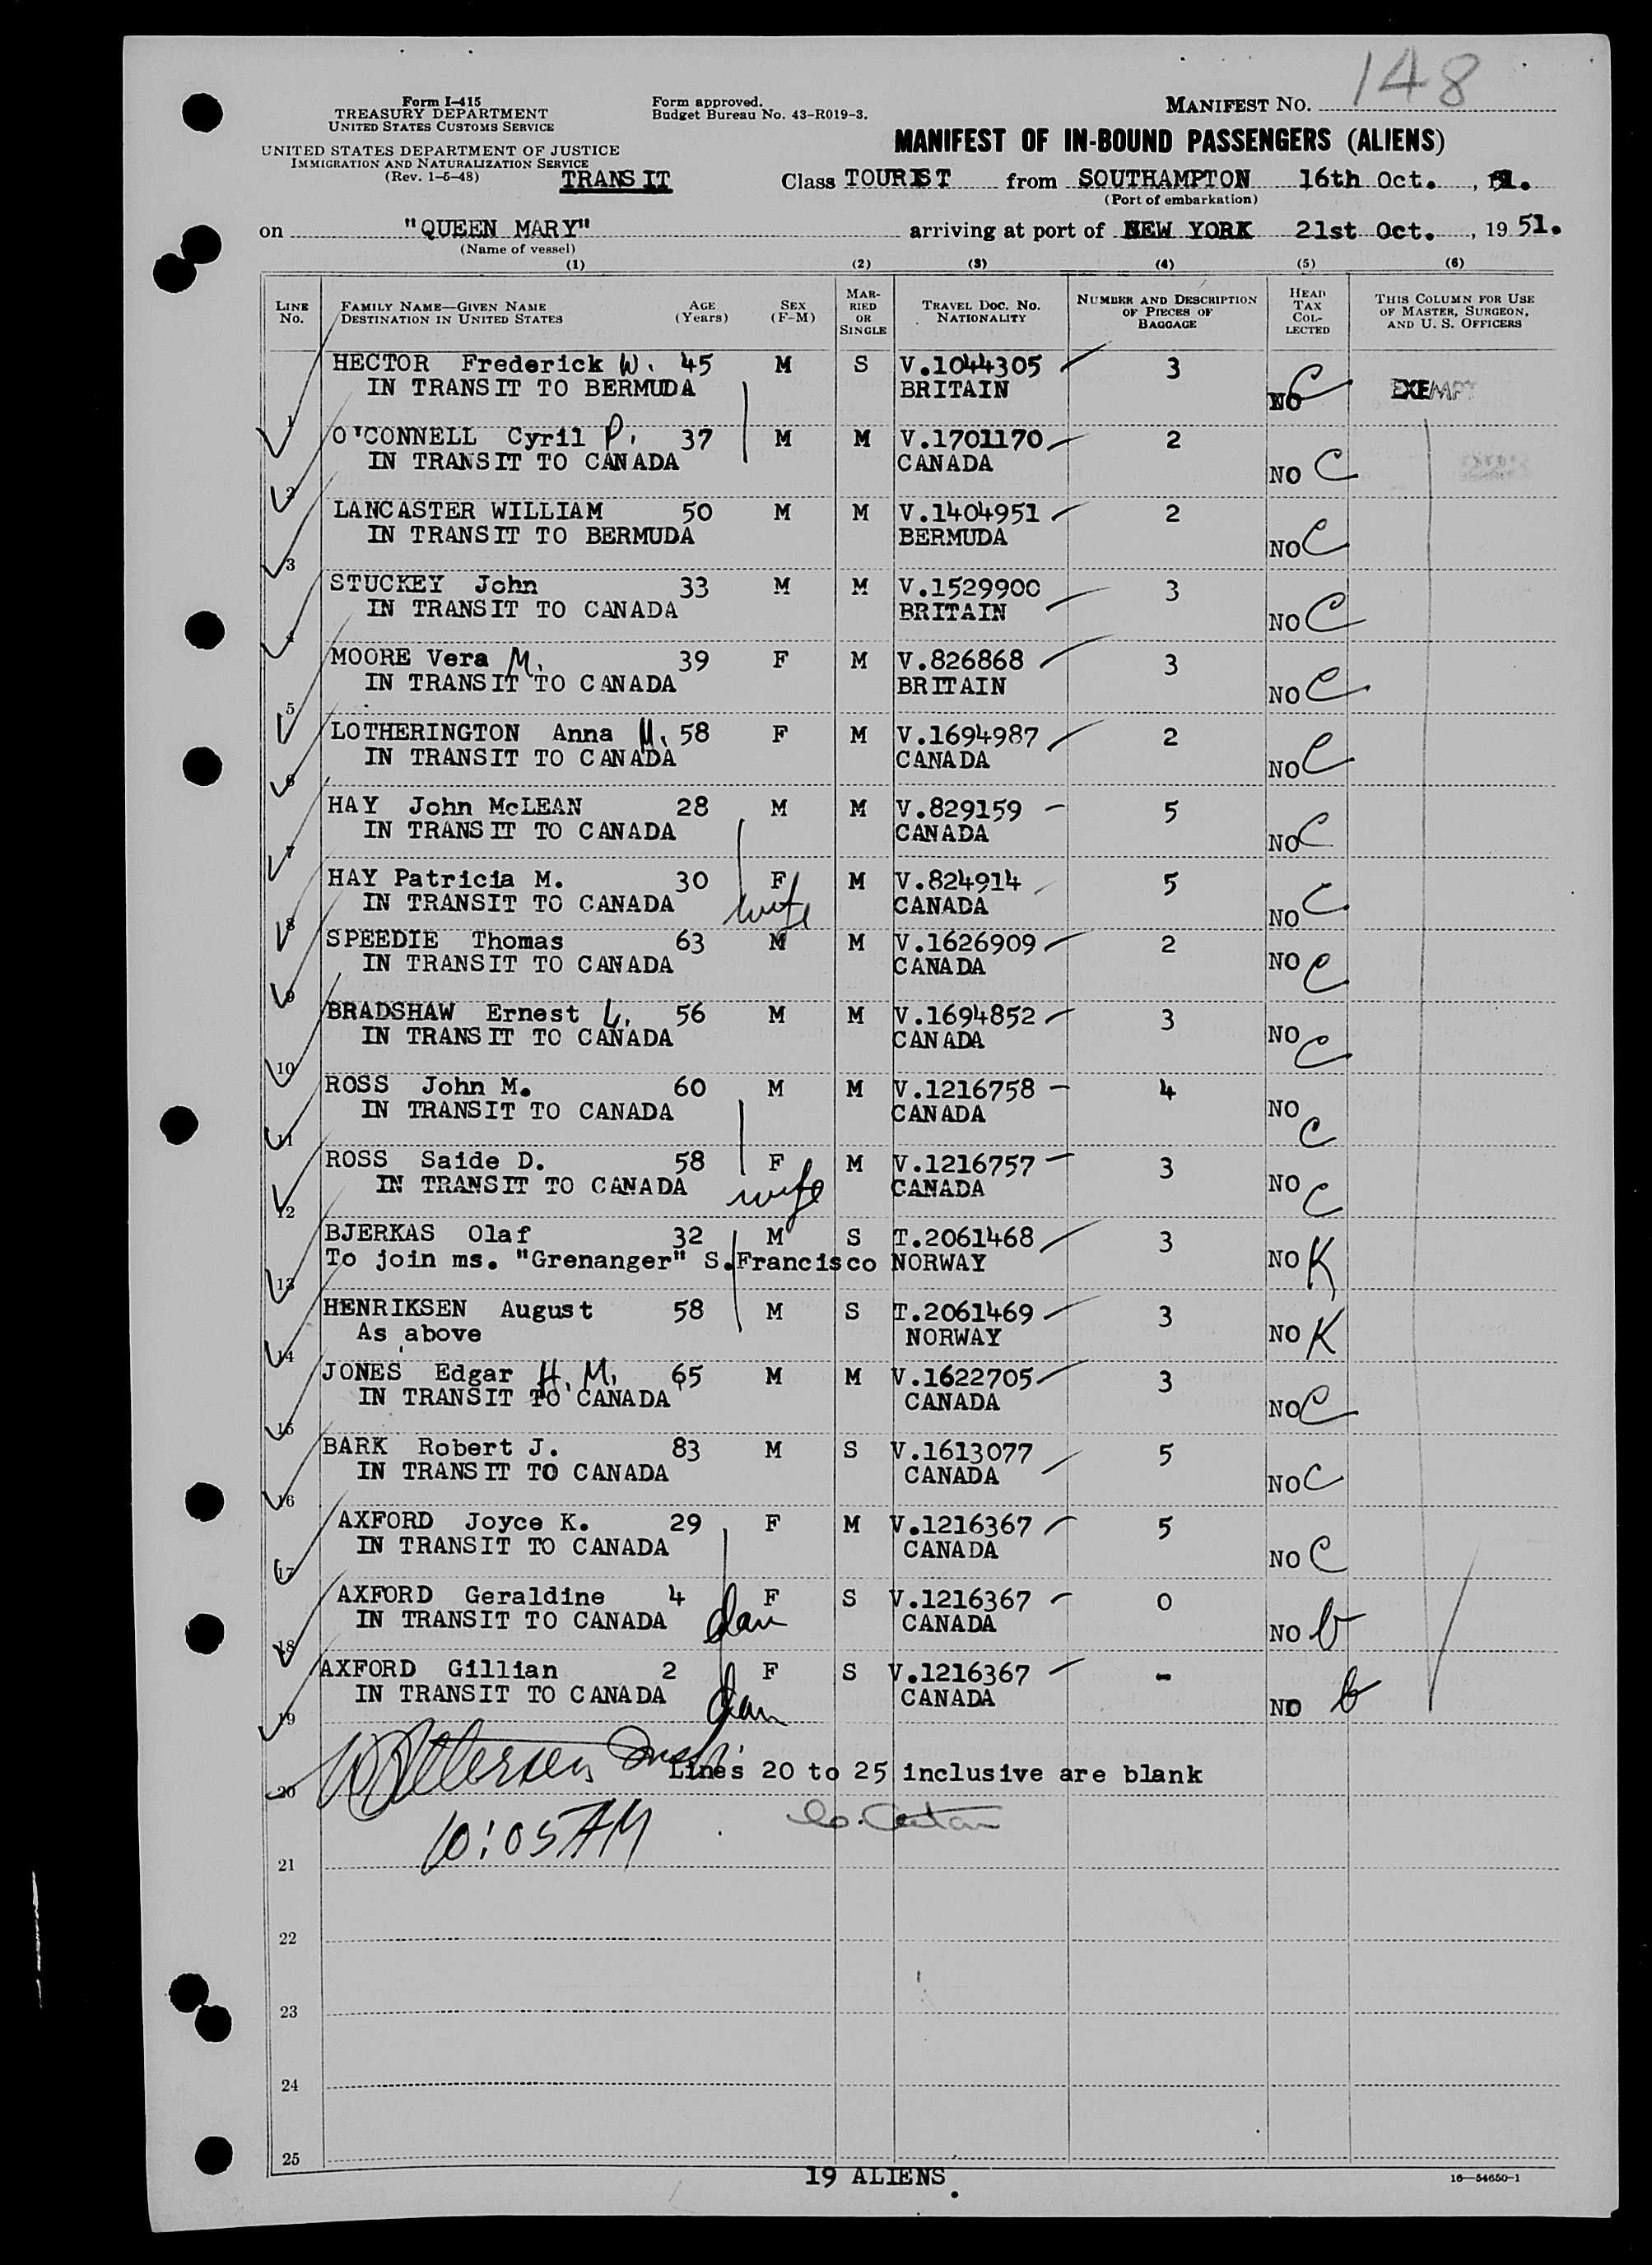 148
Form I-415
TREASURY DEPARTMENT
UNITED STATES CUSTOMS SERVICE
UNITED STATES DEPARTMENT OF JUSTICE
IMMIGRATION AND NATURALIZATION SERVICE
(Rev. 1-5-48)
Form approved.
Budget Bureau No. 43-R019-3.
MANIFEST NO.
MANIFEST OF IN-BOUND PASSENGERS (ALIENS)
TRANSIT Class TOURIST from SOUTHAMPTON 16th Oct.
(Port of embarkation)
on "QUEEN MARY" arriving at port of NEW YORK 21st Oct., 1951.
(Name of vessel)
(1) (2) (3) (4) (5) (6)
LINE No. FAMILY NAME—GIVEN NAME DESTINATION IN UNITED STATES AGE (Years) SEX (F-M) MARRIED OR SINGLE TRAVEL DOC. NO. NATIONALITY NUMBER AND DESCRIPTION OF PIECES OF BAGGAGE HEAD TAX COLLECTED THIS COLUMN FOR USE OF MASTER, SURGEON, AND U. S. OFFICERS
HECTOR Frederick W. 45 M S V.1044305 3
1 IN TRANSIT TO BERMUDA BRITAIN NO C EXEMPT
O'CONNELL Cyril P. 37 M M V.1701170 2
2 IN TRANSIT TO CANADA CANADA NO C
LANCASTER WILLIAM 50 M M V.1404951 2
3 IN TRANSIT TO BERMUDA BERMUDA NO C
STUCKEY John 33 M M V.1529900 3
4 IN TRANSIT TO CANADA BRITAIN NO C
MOORE Vera M. 39 F M V.826868 3
5 IN TRANSIT TO CANADA BRITAIN NO C
LOTHERINGTON Anna M. 58 F M V.1694987 2
6 IN TRANSIT TO CANADA CANADA NO C
HAY John McLEAN 28 M M V.829159 5
7 IN TRANSIT TO CANADA CANADA NO C
HAY Patricia M. 30 F M V.824914 5
8 IN TRANSIT TO CANADA wife CANADA NO C
SPEEDIE Thomas 63 M M V.1626909 2
9 IN TRANSIT TO CANADA CANADA NO C
BRADSHAW Ernest L. 56 M M V.1694852 3
10 IN TRANSIT TO CANADA CANADA NO C
ROSS John M. 60 M M V.1216758 4
11 IN TRANSIT TO CANADA CANADA NO C
ROSS Saide D. 58 F M V.1216757 3
12 IN TRANSIT TO CANADA wife CANADA NO C
BJERKAS Olaf 32 M S T.2061468 3
13 To join ms. "Grenanger" S.Francisco NORWAY NO K
HENRIKSEN August 58 M S T.2061469 3
14 As above NORWAY NO K
JONES Edgar H. M. 65 M M V.1622705 3
15 IN TRANSIT TO CANADA CANADA NO C
BARK Robert J. 83 M S V.1613077 5
16 IN TRANSIT TO CANADA CANADA NO C
AXFORD Joyce K. 29 F M V.1216367 5
17 IN TRANSIT TO CANADA CANADA NO C
AXFORD Geraldine 4 F S V.1216367 0
18 IN TRANSIT TO CANADA dau CANADA NO b
AXFORD Gillian 2 F S V.1216367 -
19 IN TRANSIT TO CANADA dau CANADA NO b
20 Lines 20 to 25 inclusive are blank
10:05 AM
21
22
23
24
25
19 ALIENS.
16—54650-1